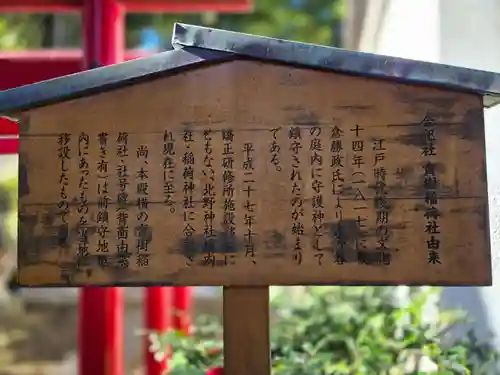 合祀社 貴樹稲荷社由来
江戸時代後期の文化
十四年(一八一七)に
倉藤政氏により
の庭内に守護神として
鎮守されたのが始まり
である。
平成二十七年十月、
矯正研修所施設移
ともない、北野神社境内
社・稲荷神社に合祀さ
れ現在に至る。
尚、本殿横の貴樹稲
荷社、社号碑(背面由
書き有)は前鎮守地
内にあったものを
移設したものである。